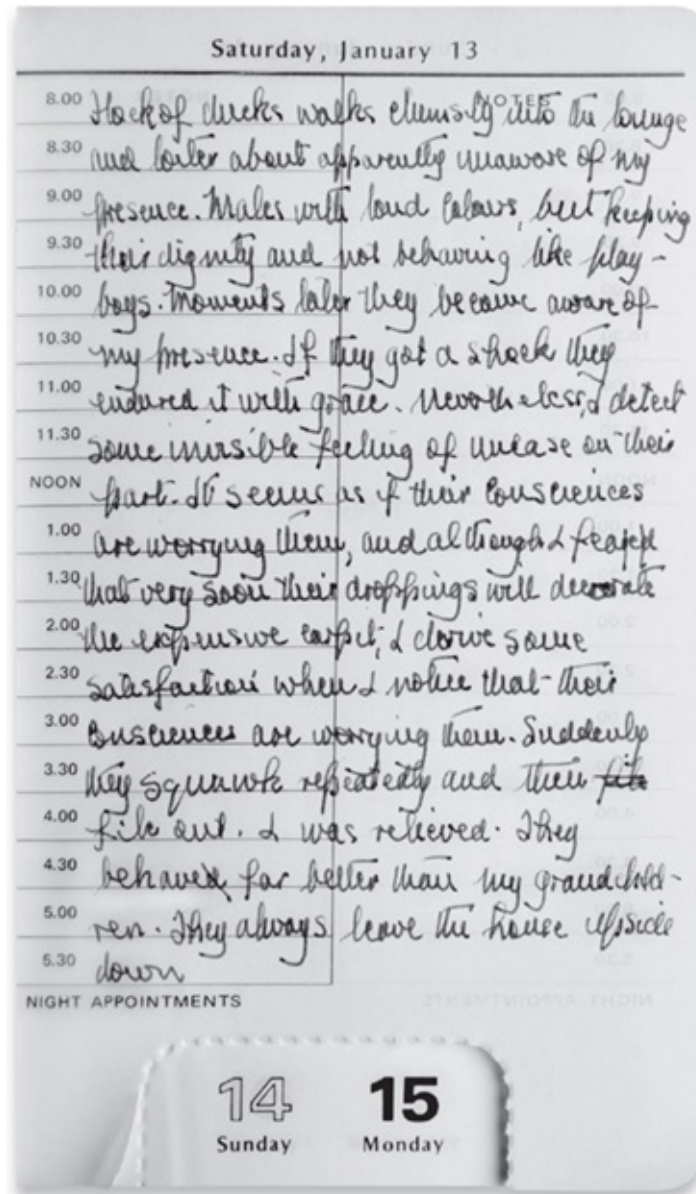 Saturday, January 13
NOTES
8.00 Flock of ducks walks clumsily into the lounge
8.30 and loiter about apparently unaware of my
9.00 presence. Males with loud colours, but keeping
9.30 their dignity and not behaving like play-
10.00 boys. Moments later they became aware of
10.30 my presence. If they got a shock they
11.00 endured it with grace. Nevertheless, I detect
11.30 some invisible feeling of unease on their
NOON part. It seems as if their consciences
1.00 are worrying them, and although I feared
1.30 that very soon their droppings will decorate
2.00 the expensive carpet, I derive some
2.30 satisfaction when I notice that their
3.00 consciences are worrying them. Suddenly
3.30 they squawk repeatedly and then file
4.00 file out. I was relieved. They
4.30 behaved far better than my grandchild-
5.00 ren. They always leave the house upside
5.30 down
NIGHT APPOINTMENTS
14 15
Sunday Monday